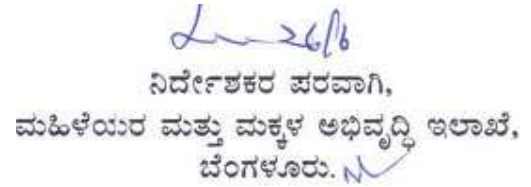 26/6
ನಿರ್ದೇಶಕರ ಪರವಾಗಿ,
ಮಹಿಳೆಯರ ಮತ್ತು ಮಕ್ಕಳ ಅಭಿವೃದ್ಧಿ ಇಲಾಖೆ,
ಬೆಂಗಳೂರು.